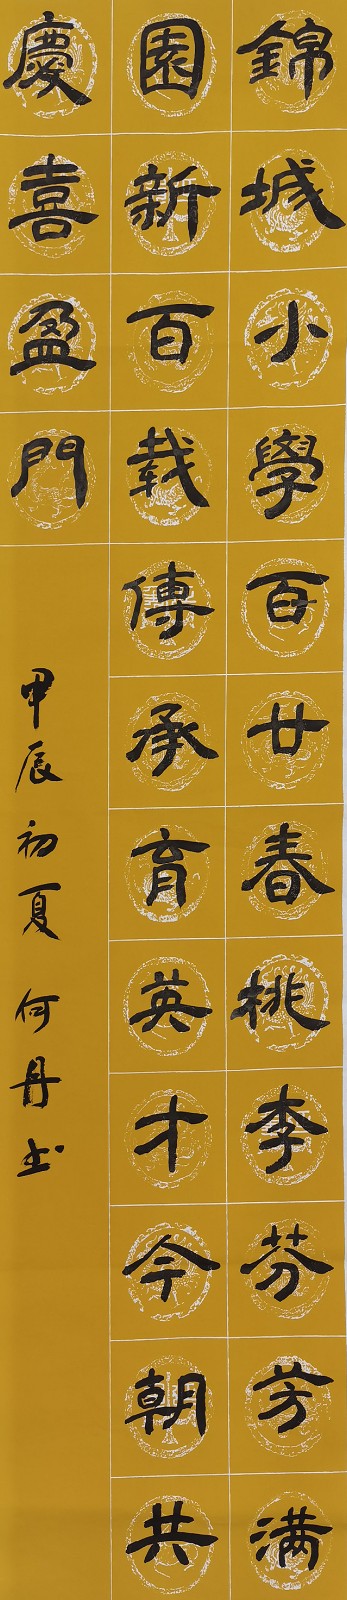 錦城小學百廿春桃李芬芳满
園新百载傳承育英才今朝共
慶喜盈門
甲辰初夏 何丹书